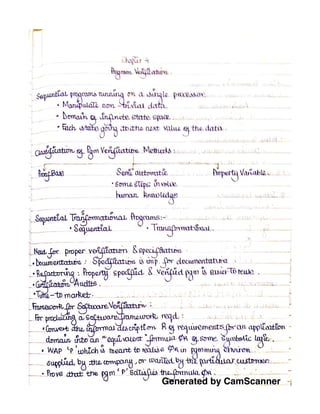 Chapter 4
Program Verification
Sequential programs running on a single processor.
• Manipulate non-trivial data.
• Domain of infinite state space
• Each state going to the next value of the data.
Classification of Pgm Verification Methods:
Proof Based Semi automatic Property Variable
• Some steps involve
human knowledge
Sequential Transformational Programs:-
• Sequential • Transformational
Need for proper verification & specification
• Documentation : Specification is imp. for documentation
• Refactoring : Property specified & verified pgm is easier to
• Certification Audits.
• Time-to market.
Framework for Software Verification :
For producing a software framework reqd :
• Convert the informal description R of requirements for an application
domain into an "equivalent" formula ϕR of some symbolic logic.
• WAP 'P' which is meant to realise ϕR in pgmming environ.
supplied by the company, or wanted by the particular customer
• Prove that the pgm 'P' satisfies the formula ϕR.
Generated by CamScanner